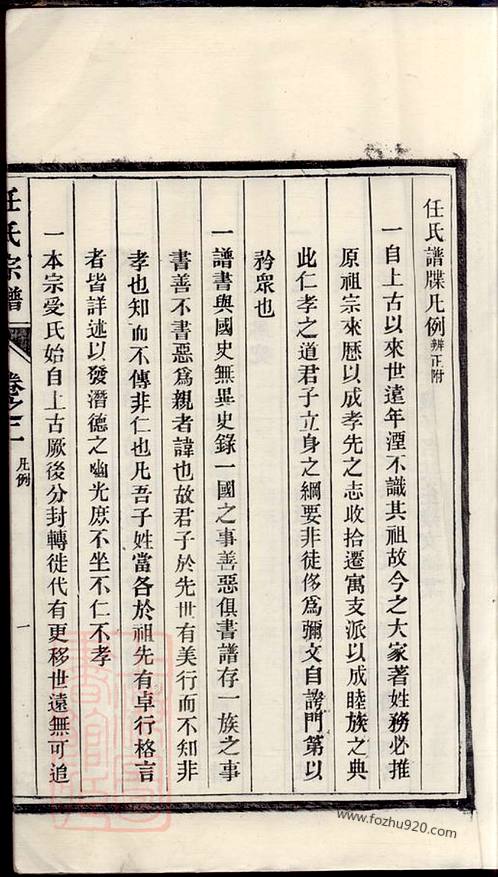 任氏譜牒凡例辨正附
一自上古以來世遠年湮不識其祖故今之大家著姓務必推
原祖宗來歷以成孝先之志收拾遷寓支派以成睦族之典
此仁孝之道君子立身之綱要非徒侈爲彌文自誇門第以
矜衆也
一譜書與國史無異史錄一國之事善惡俱書譜存一族之事
書善不書惡爲親者諱也故君子於先世有美行而不知非
孝也知而不傳非仁也凡吾子姓當各於祖先有卓行格言
者皆詳述以發潛德之幽光庶不坐不仁不孝
一本宗受氏始自上古厥後分封轉徙代有更移世遠無可追
任氏宗譜
卷之二
凡例
一
www.fozhu920.com